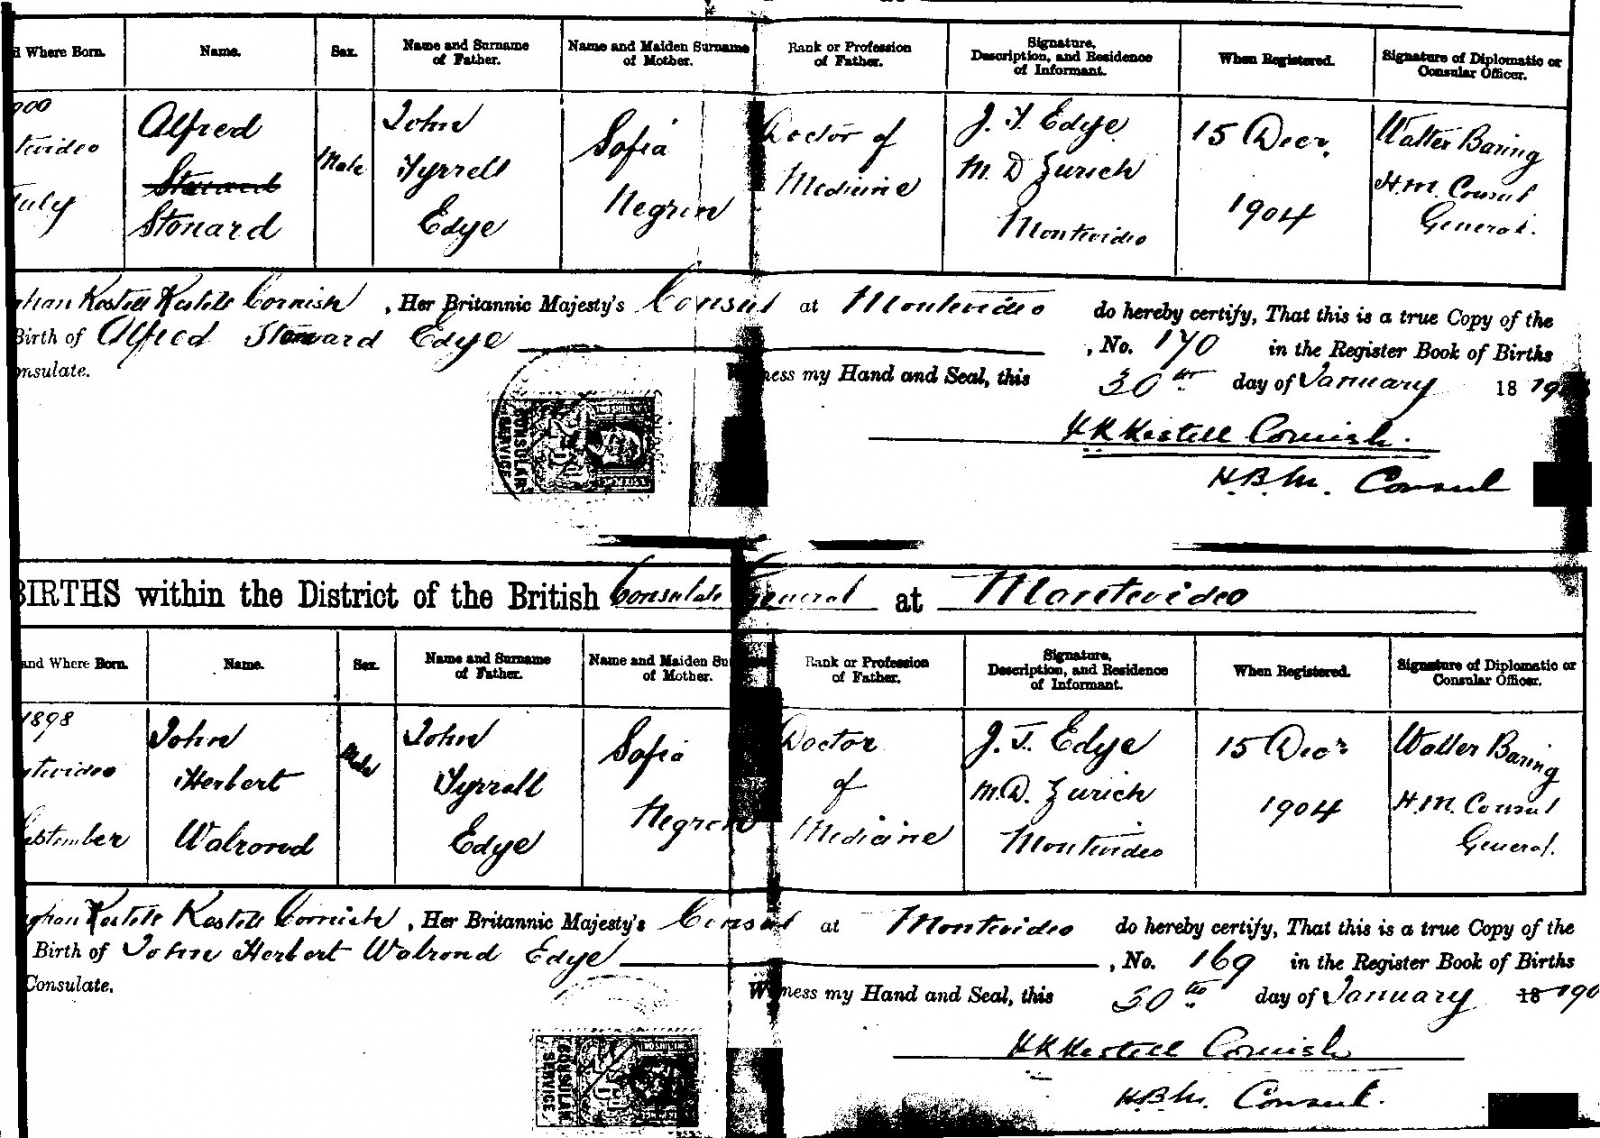 Where Born. Name. Sex. Name and Surname of Father. Name and Maiden Surname of Mother. Rank or Profession of Father. Signature, Description, and Residence of Informant. When Registered. Signature of Diplomatic or Consular Officer.
Alfred Stonard
Male
John Tyrrell Edye
Sofia Negron
Doctor of Medicine
J. T. Edye M. D Zurich Montevideo
15 Decr. 1904
Walter Baring H.M. Consul General.
Kestell Cornish, Her Britannic Majesty's Consul at Montevideo do hereby certify, That this is a true Copy of the
Birth of Alfred Stonard Edye , No. 170 in the Register Book of Births
Witness my Hand and Seal, this 30th day of January 18
CONSULAR SERVICE
Kestell Cornish.
H.B.M. Consul
BIRTHS within the District of the British Consulate General at Montevideo
and Where Born. Name. Sex. Name and Surname of Father. Name and Maiden of Mother. Rank or Profession of Father. Signature, Description, and Residence of Informant. When Registered. Signature of Diplomatic or Consular Officer.
1898
John Herbert Walrond
Male
John Tyrrell Edye
Sofia Negron
Doctor of Medicine
J. T. Edye M.D. Zurich Montevideo
15 Decr 1904
Walter Baring H.M. Consul General.
Kestell Cornish, Her Britannic Majesty's Consul at Montevideo do hereby certify, That this is a true Copy of the
Birth of John Herbert Walrond Edye , No. 169 in the Register Book of Births
Consulate.
Witness my Hand and Seal, this 30th day of January 18 190
CONSULAR SERVICE.
Kestell Cornish
H.B.M. Consul.